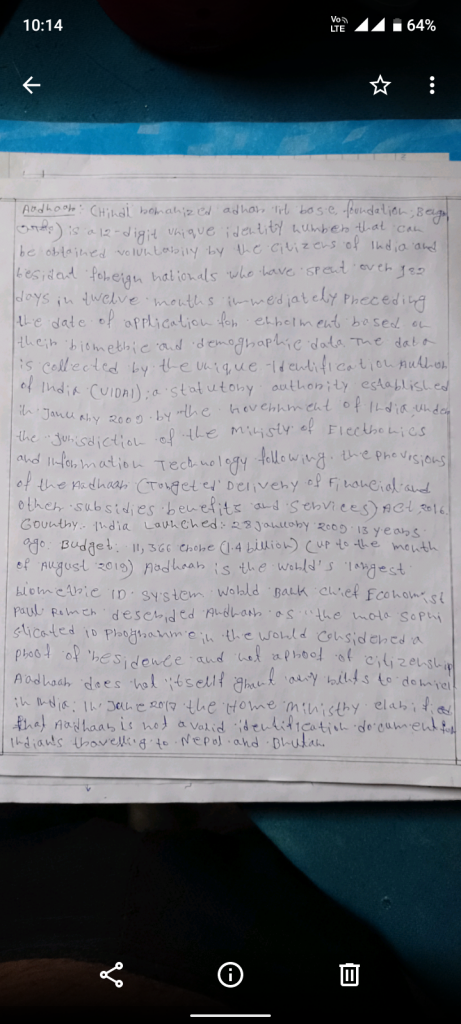 10:14
Vo LTE
64%
Aadhaar: (Hindi romanized adhar lit base foundation, Benga
) is a 12-digit unique identity number that can
be obtained voluntarily by the citizens of India and
resident foreign nationals who have spent over 182
days in twelve months immediately preceding
the date of application for enrolment based on
their biometric and demographic data The data
is collected by the unique Identification Author
of India (UIDAI), a statutory authority established
in January 2009 by the Government of India, under
the Jurisdiction of the Ministy of Electronics
and Information Technology following the provisions
of the Aadhaar (Targeted Delivery of Financial and
other subsidies benefits and services) Act, 2016
Country: India Launched: 28 January 2009 13 years
ago Budget: 11,366 crore (1.4 billion) (up to the month
of August 2019) Aadhaar is the world's largest
biometric ID system world Bank chief Economist
Paul Romer described Aadhaar as "the most sophi
sticated ID programme in the world Considered a
proof of residence and not a proof of citizenship
Aadhaar does not itself grant any rights to domicil
in India, In June 2017 the Home Ministry clarified
that Aadhaar is not a valid identification document for
Indians travelling to Nepal and Bhutan